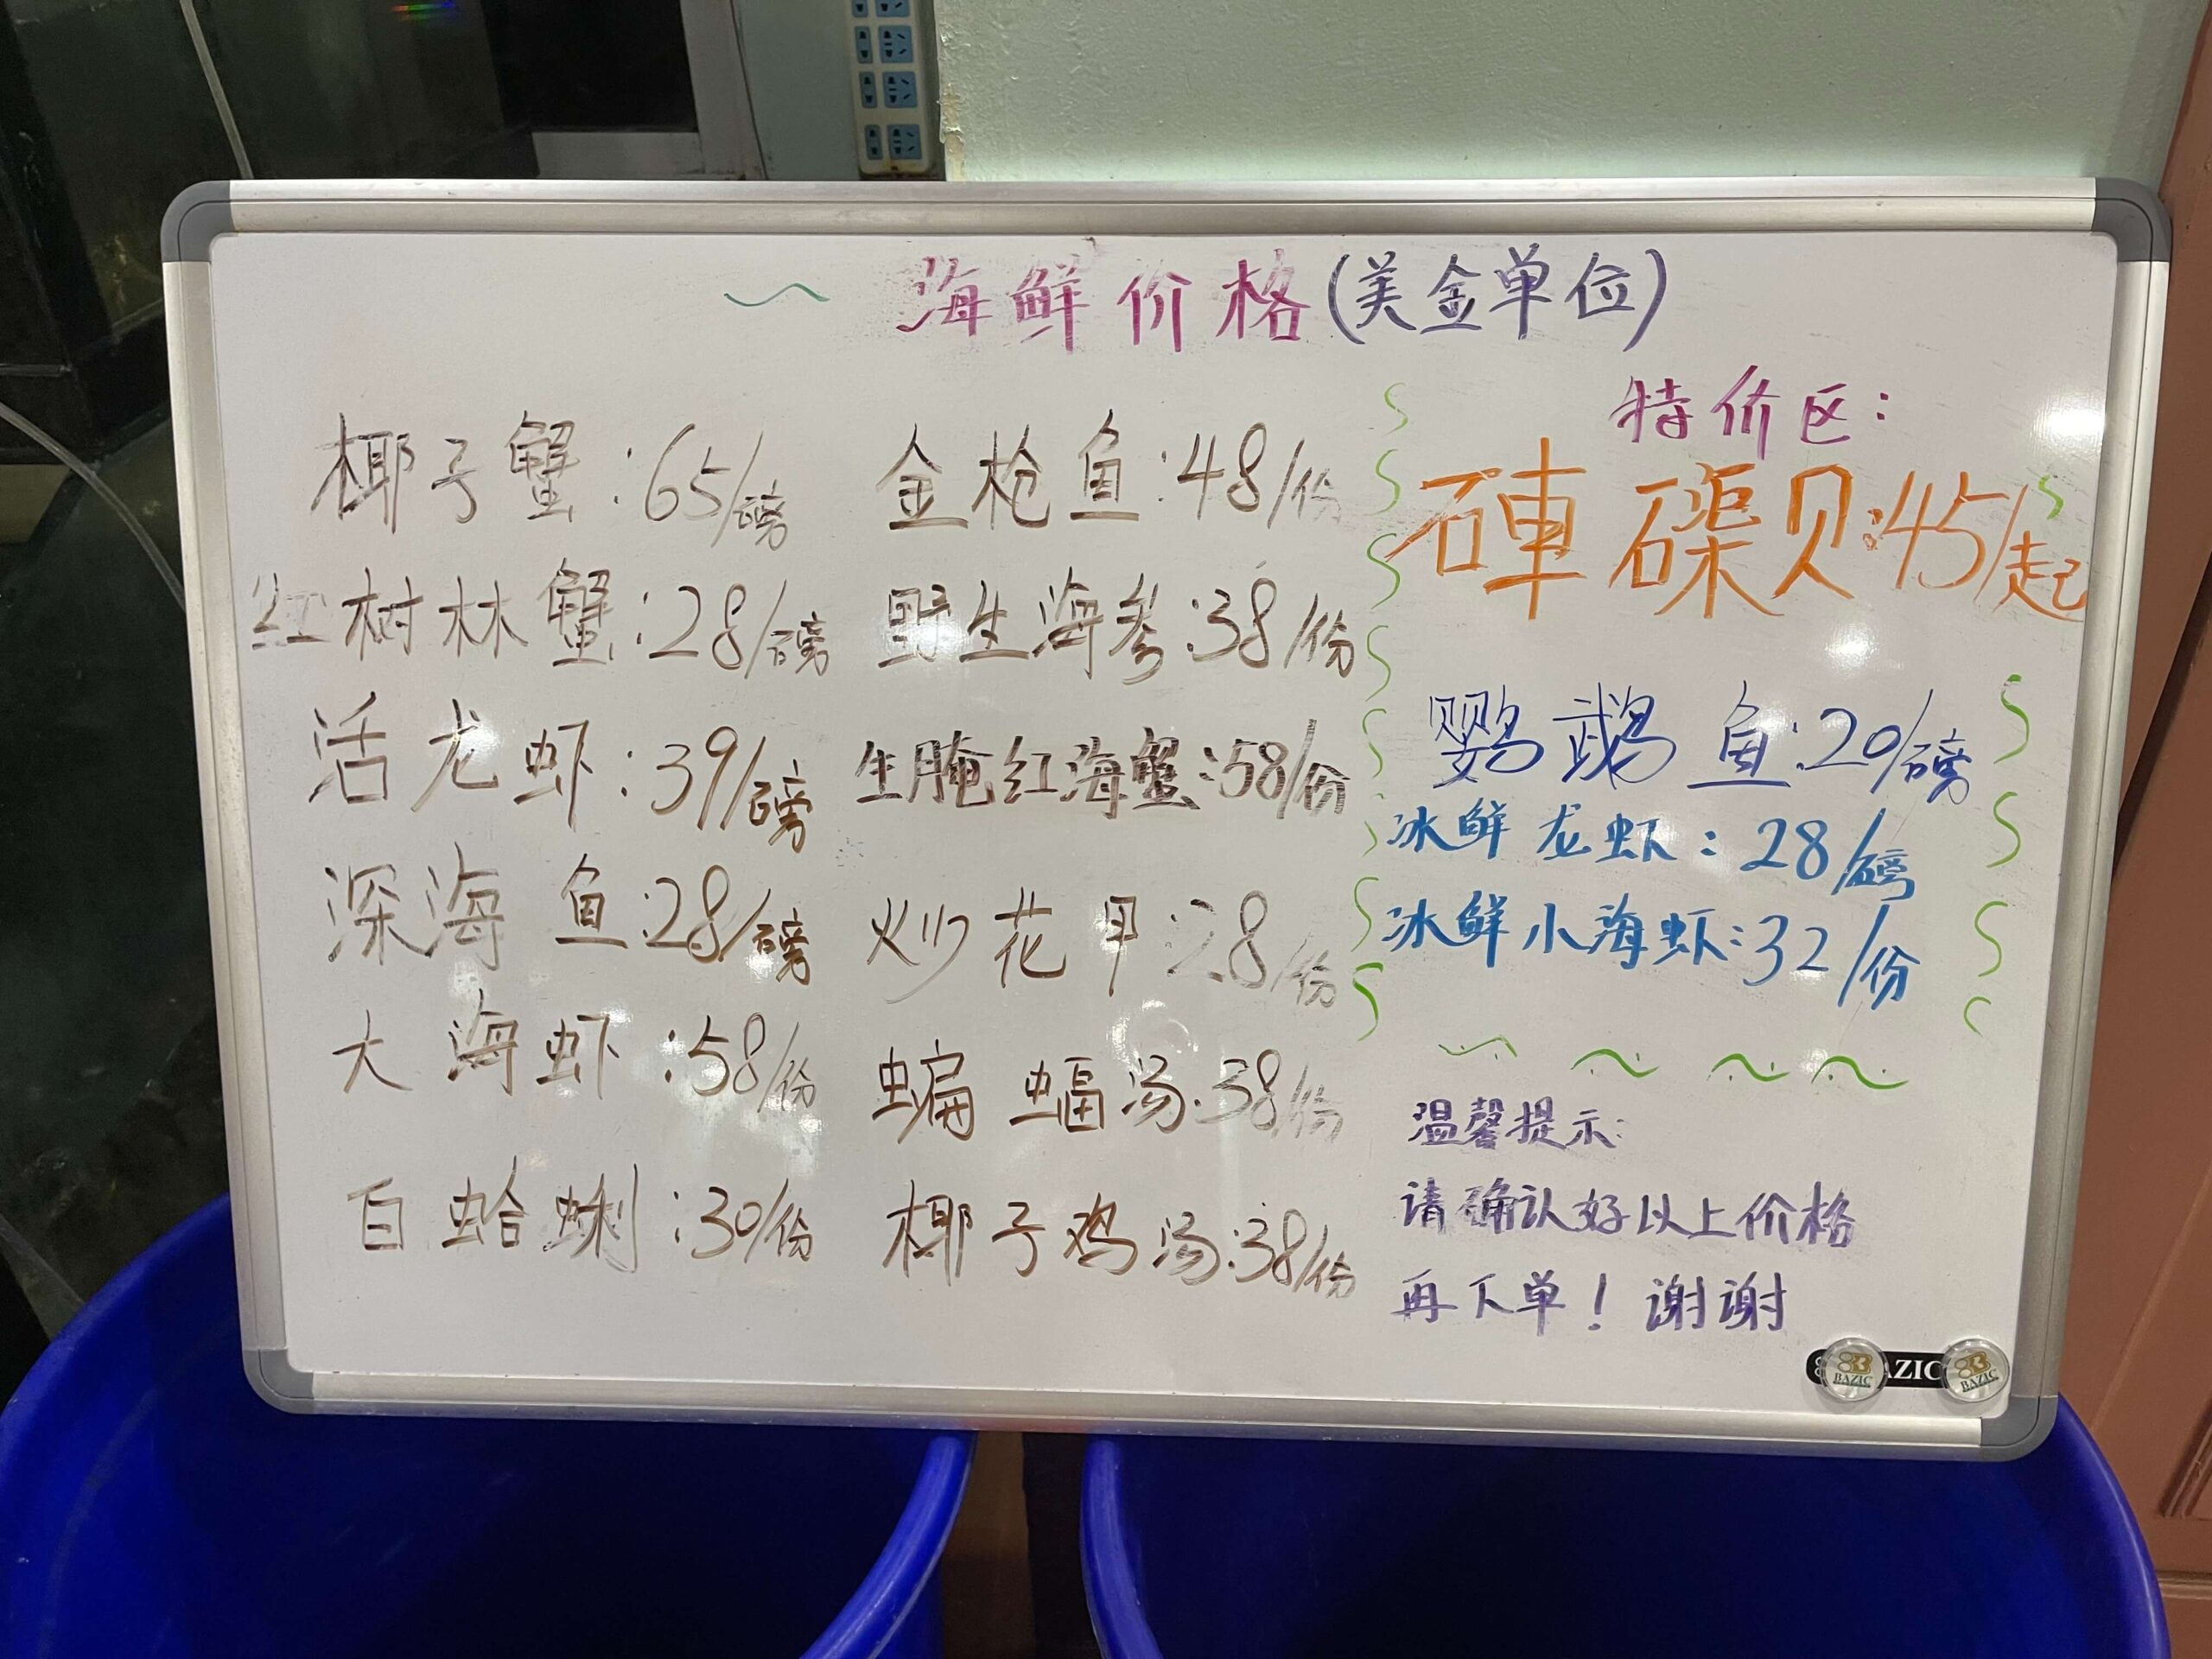 海鲜价格(美金单位)
椰子蟹:65/磅
红树林蟹:28/磅
活龙虾:39/磅
深海鱼:28/磅
大海虾:58/份
白蛤蜊:30/份
金枪鱼:48/份
野生海参:38/份
生腌红海蟹:58/份
炒花甲:28/份
蝙蝠汤:38/份
椰子鸡汤:38/份
特价区:
砗磲贝:45/起
鹦鹉鱼:20/磅
冰鲜龙虾:28/磅
冰鲜小海虾:32/份
温馨提示:
请确认好以上价格
再下单!谢谢
BAZIC
AZIC
BAZIC